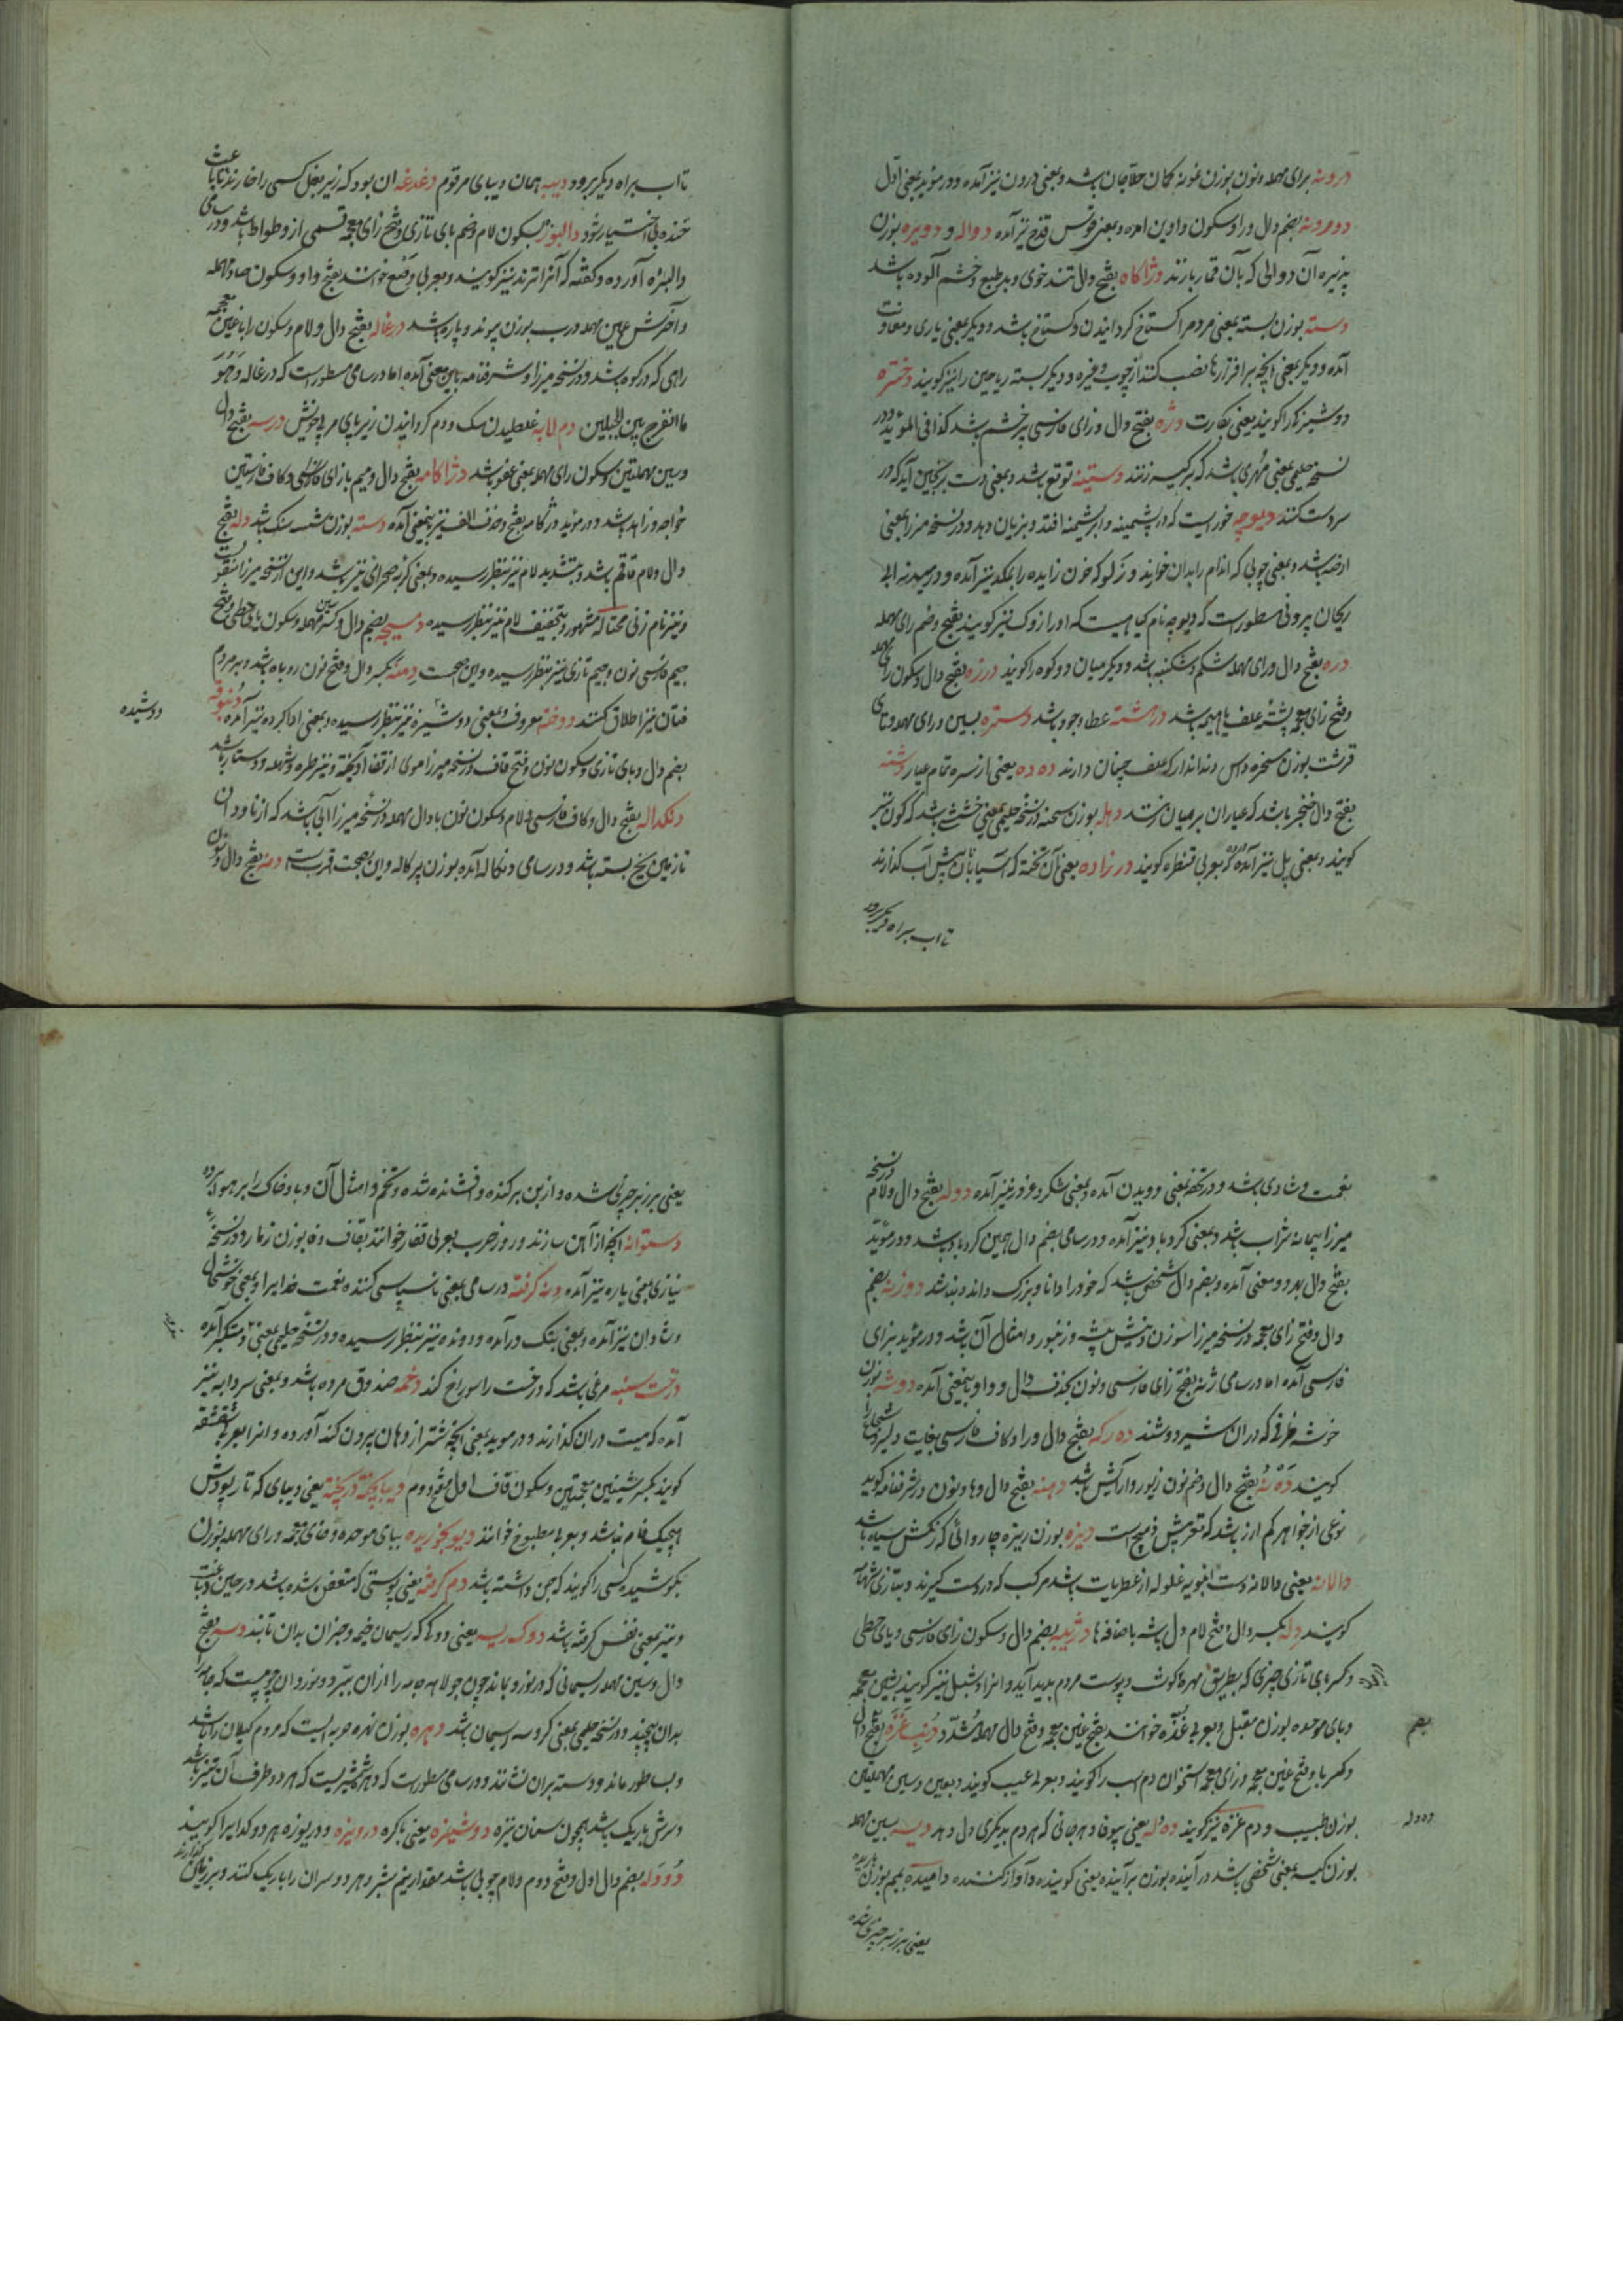 درونه برای مهمله و نون بوزن نمونه کمان حلاجان باشد و بمعنی درون نیز آمده و در موید بمعنی اول
دو درونه بضم دال و را و سکون واوین امده و بمعنی قوس قزح نیز آمده دواله و دویره بوزن
پذیره آن دوالی که بآن قمار بازند دژاکاه بفتح دال تند خوی و بد طبع و خشم آلوده باشد
دسته بوزن بسته بمعنی مردم را کستاخ کردانیدن و کستاخ باشد و دیکر بمعنی یاری و معاونت
آمده و دیکر بمعنی انچه بر افزارها نصب کنند از چوب و غیره و دیکر بسته ریاحین را نیز کویند دخترة
دوشیزکی را کویند یعنی بکارت دژه بفتح دال و زای فارسی پر خشم باشد کذا فی الموید و در
نسخه حلیمی بمعنی مهری باشد که بر کیسه زنند دستینه توقیع باشد و بمعنی دست برنجین آید که در
سر دست کنند دیوچه خوریست که در پشمینه و ابریشمینه افتد و بزیان دهد و در نسخه میرزا بمعنی
ارضه باشد و بمعنی چوبی که اندام را بدان خوانید و زلو که خون زایده را بمکد نیز آمده و در صیدنه ابی
ریحان بیرونی مسطورست که دیوچه نام کیاهیست که او را زوک نیز کویند بفتح و ضم رای مهمله
دره بفتح دال و رای مهمله شکم و شکنبه باشد و دیکر میان دو کوه را کویند درزه بفتح دال و سکون رای مهمله
و فتح زای معجمه پشته علف یا هیمه باشد دراشته عطا و جود باشد دستره بسین و رای مهمله و تای
قرشت بوزن سخره داس دندانه دار که علف چنان دارند ده ده یعنی از نسره تمام عیار دشنه
بفتح دال خنجر باشد که عیاران بر میان بندند دهله بوزن سحنه در نسخه حلیمی بمعنی خشتی باشد که کون نیز
کویند و بمعنی پل نیز آمده که بعربی قنطره کویند درزاده یعنی آن تخته که آسیابانان پیش آب کذارند
تا اب براه دیکر رود
تا اب براه دیکر برود دیبه همان دیبای مرقوم دغدغه ان بود که زیر بغل کسی را خارند تا باعث
خنده بی اختیار شود دالبوز بسکون لام و ضم بای تازی و فتح زای معجمه قسمی از وطواط باشد و در سامی
دالبزه آورده و کفته که آنرا ترند نیز کویند و بعربی وصع خوانند بفتح واو و سکون صاد مهمله
و آخرش عین مهمله درب بوزن پیوند و پاره باشد درغاله بفتح دال و لام و سکون را با غین معجمه
راهی که در کوه باشد و در نسخه میرزا و شرفنامه باین معنی آمده اما در سامی مسطور است که درغاله و هو
ما انفرج بین الجبلین دم لابه غلطیدن سک و دم کردانیدن زیر پای مربی خویش درسه بفتح دال
و سین مهملتین و سکون رای مهمله بمعنی عفو باشد دژاکامه بفتح دال و میم با زای فارسی و کاف فارسین
خواجه و زاهد باشد و در موید دژکامه بفتح و حذف الف نیز باینمعنی آمده دسته بوزن شسته سنک باشد دله بفتح
دال و لام قاقم باشد و بتشدید لام نیز بنظر رسیده و بمعنی کربه صحرای نیز باشد و این از نسخه میرزا منقولست
و نیز نام زنی محتاله مشهور و بتخفیف لام نیز بنظر رسیده دمسیچه بضم دال و کسر سین مهمله و سکون یای حطی و فتح
جیم فارسی نون و جیم تازی نیز بنظر رسیده و این اصحست دمنه بکسر دال و فتح نون روباه باشد و بر مردم
فتان نیز اطلاق کنند دوخته معروف و بمعنی دوشیزه نیز بنظر رسیده و بمعنی ادا کرده نیز آمده دنبوقه
بضم دال و بای تازی و سکون نون و فتح قاف در نسخه میرزا موی از قفا آویخته و نیز طره و شمله و دستار باشد
دنکداله بفتح دال و کاف فارسی و لام و سکون نون با دال مهمله در نسخه میرزا آبی باشد که از ناودان
تا زمین یخ بسته باشد و در سامی دنکاله آمده بوزن پرکاله و این بصحت اقربست دنه بفتح دال و نون
دوشیده
نعمت و شادی باشد و در تحفه بمعنی دویدن آمده و بمعنی شکر و غرور نیز آمده دوله بفتح دال و لام در نسخه
میرزا پیمانه شراب باشد و بمعنی کردباد نیز آمده و در سامی بضم دال همین کردباد باشد و در موید
بفتح دال بهر دو معنی آمده و بضم دال شخصی باشد که خود را دانا و بزرک داند و نباشد دوزنه بضم
دال و فتح زای معجمه در نسخه میرزا سوزن و نیش پشه و زنبور و امثال آن باشد و در موید بزای
فارسی آمده اما در سامی ژنه بفتح زای فارسی و نون بحذف دال و واو باینمعنی آمده دوشه بوزن
خوشه ظرفی که دران شیر دوشند ده رکه بفتح دال و را و کاف فارسی بغایت دلیر و شجاع را
کویند دَه نُه بفتح دال و ضم نون زیور و آرایش باشد دهنه بفتح دال و ها و نون در شرفنامه کوید
نوعی از جواهر کم ارز باشد که تعریبش دهنج است دیزه بوزن ریزه چاروائی که رنکش سیاه باشد
دالانه یعنی دالانه دست انبویه غلوله از عطریات باشد مرکب که در دست کیرند و بتازی شمامه
کویند دله بکسر دال و فتح لام دل باشه باضافه ها دژپیه بضم دال و سکون زای فارسی و یای حطی
و کسر بای تازی چیزی که بطریق مهره کوشت و پوست مردم پدید آید و انرا دشبل نیز کویند بشین معجمه
و بای موحده بوزن مقبل و بعربی غده خوانند بفتح غین معجمه و فتح دال مهمله مشدد دنب غزه بفتح دال
و کسر با و فتح غین معجمه و زای معجمه استخوان دم اسب را کویند و بعربی عیب کویند و بعین و سین مهملتین
بوزن طبیب و دم غزه نیز کویند ده دله یعنی بیوفا و هرجائی که هر دم بدیکری دل دهد دیسه بسین مهمله
بوزن کیسه بمعنی شخص باشد درآینده بوزن برآینده یعنی کوینده و آواز کننده دامیده بمیم بوزن باریده
یعنی برزبر چیزی شده
بضم
ده دله
یعنی برزبر چیزی شده و از بن برکنده و افشانده شده و تخم و امثال آن و باد خاک را بر هوا برده
دستوانه انچه از آهن سازند و روز حرب بعربی قفاز خوانند بقاف و فا بوزن زنار و در نسخه
نیازی بمعنی یاره نیز آمده دنه کرفته در سامی بمعنی ناسپاسی کننده نعمت خدایرا و بمعنی خوشحال
و شادان نیز آمده و بمعنی بتک درآمده و دونده نیز بنظر رسیده و در نسخه حلیمی بمعنی متکبر آمده
درخت سنبه مرغی باشد که درخت را سوراخ کند دخمه صندوق مرده باشد و بمعنی سردابه نیز
آمده که میت دران کذارند و در موید بمعنی انچه شتر از دهان بیرون کند آورده و انرا بعربی شقشقه
کویند بکسر شینین معجمتین و سکون قاف اول و فتح دوم دیبا پخته در پخته یعنی دیبای که تار پودش
هیچیک خام نباشد و بعربی مطبوخ خوانند دیو بخوریده ببای موحده و خای معجمه و رای مهمله بوزن
بکوشیده کسی را کویند که جن داشته باشد دم کرفته یعنی پوستی که متعفن شده باشد در حین دباغت
و نیز بمعنی نفس کرفته باشد دوک ریسه یعنی دوکی که ریسمان خیمه و جز ان بدان تابند دسه بفتح
دال و سین مهمله ریسمانی که در نورد بماند چون جولاهه جامه را از ان ببرد و نورد ان چوبیست که جامه را
بدان پیچند و در نسخه حلیمی بمعنی کروهه ریسمان باشد دهره بوزن نهره حربه ایست که مردم کیلان را باشد
و بساطور ماند و دسته بران نشانند و در سامی مسطورست که دهره شمشیریست که هر دو طرف آن تیز باشد
و سرش باریک باشد همچون سنان نیزه دوشیزه یعنی باکره درویزه و دریوزه هر دو کدایرا کویند
دُودَله بضم دال اول و فتح دوم و لام چوبی باشد مقدار نیم شبر و هر دو سران را باریک کنند و بر زمین کذارند